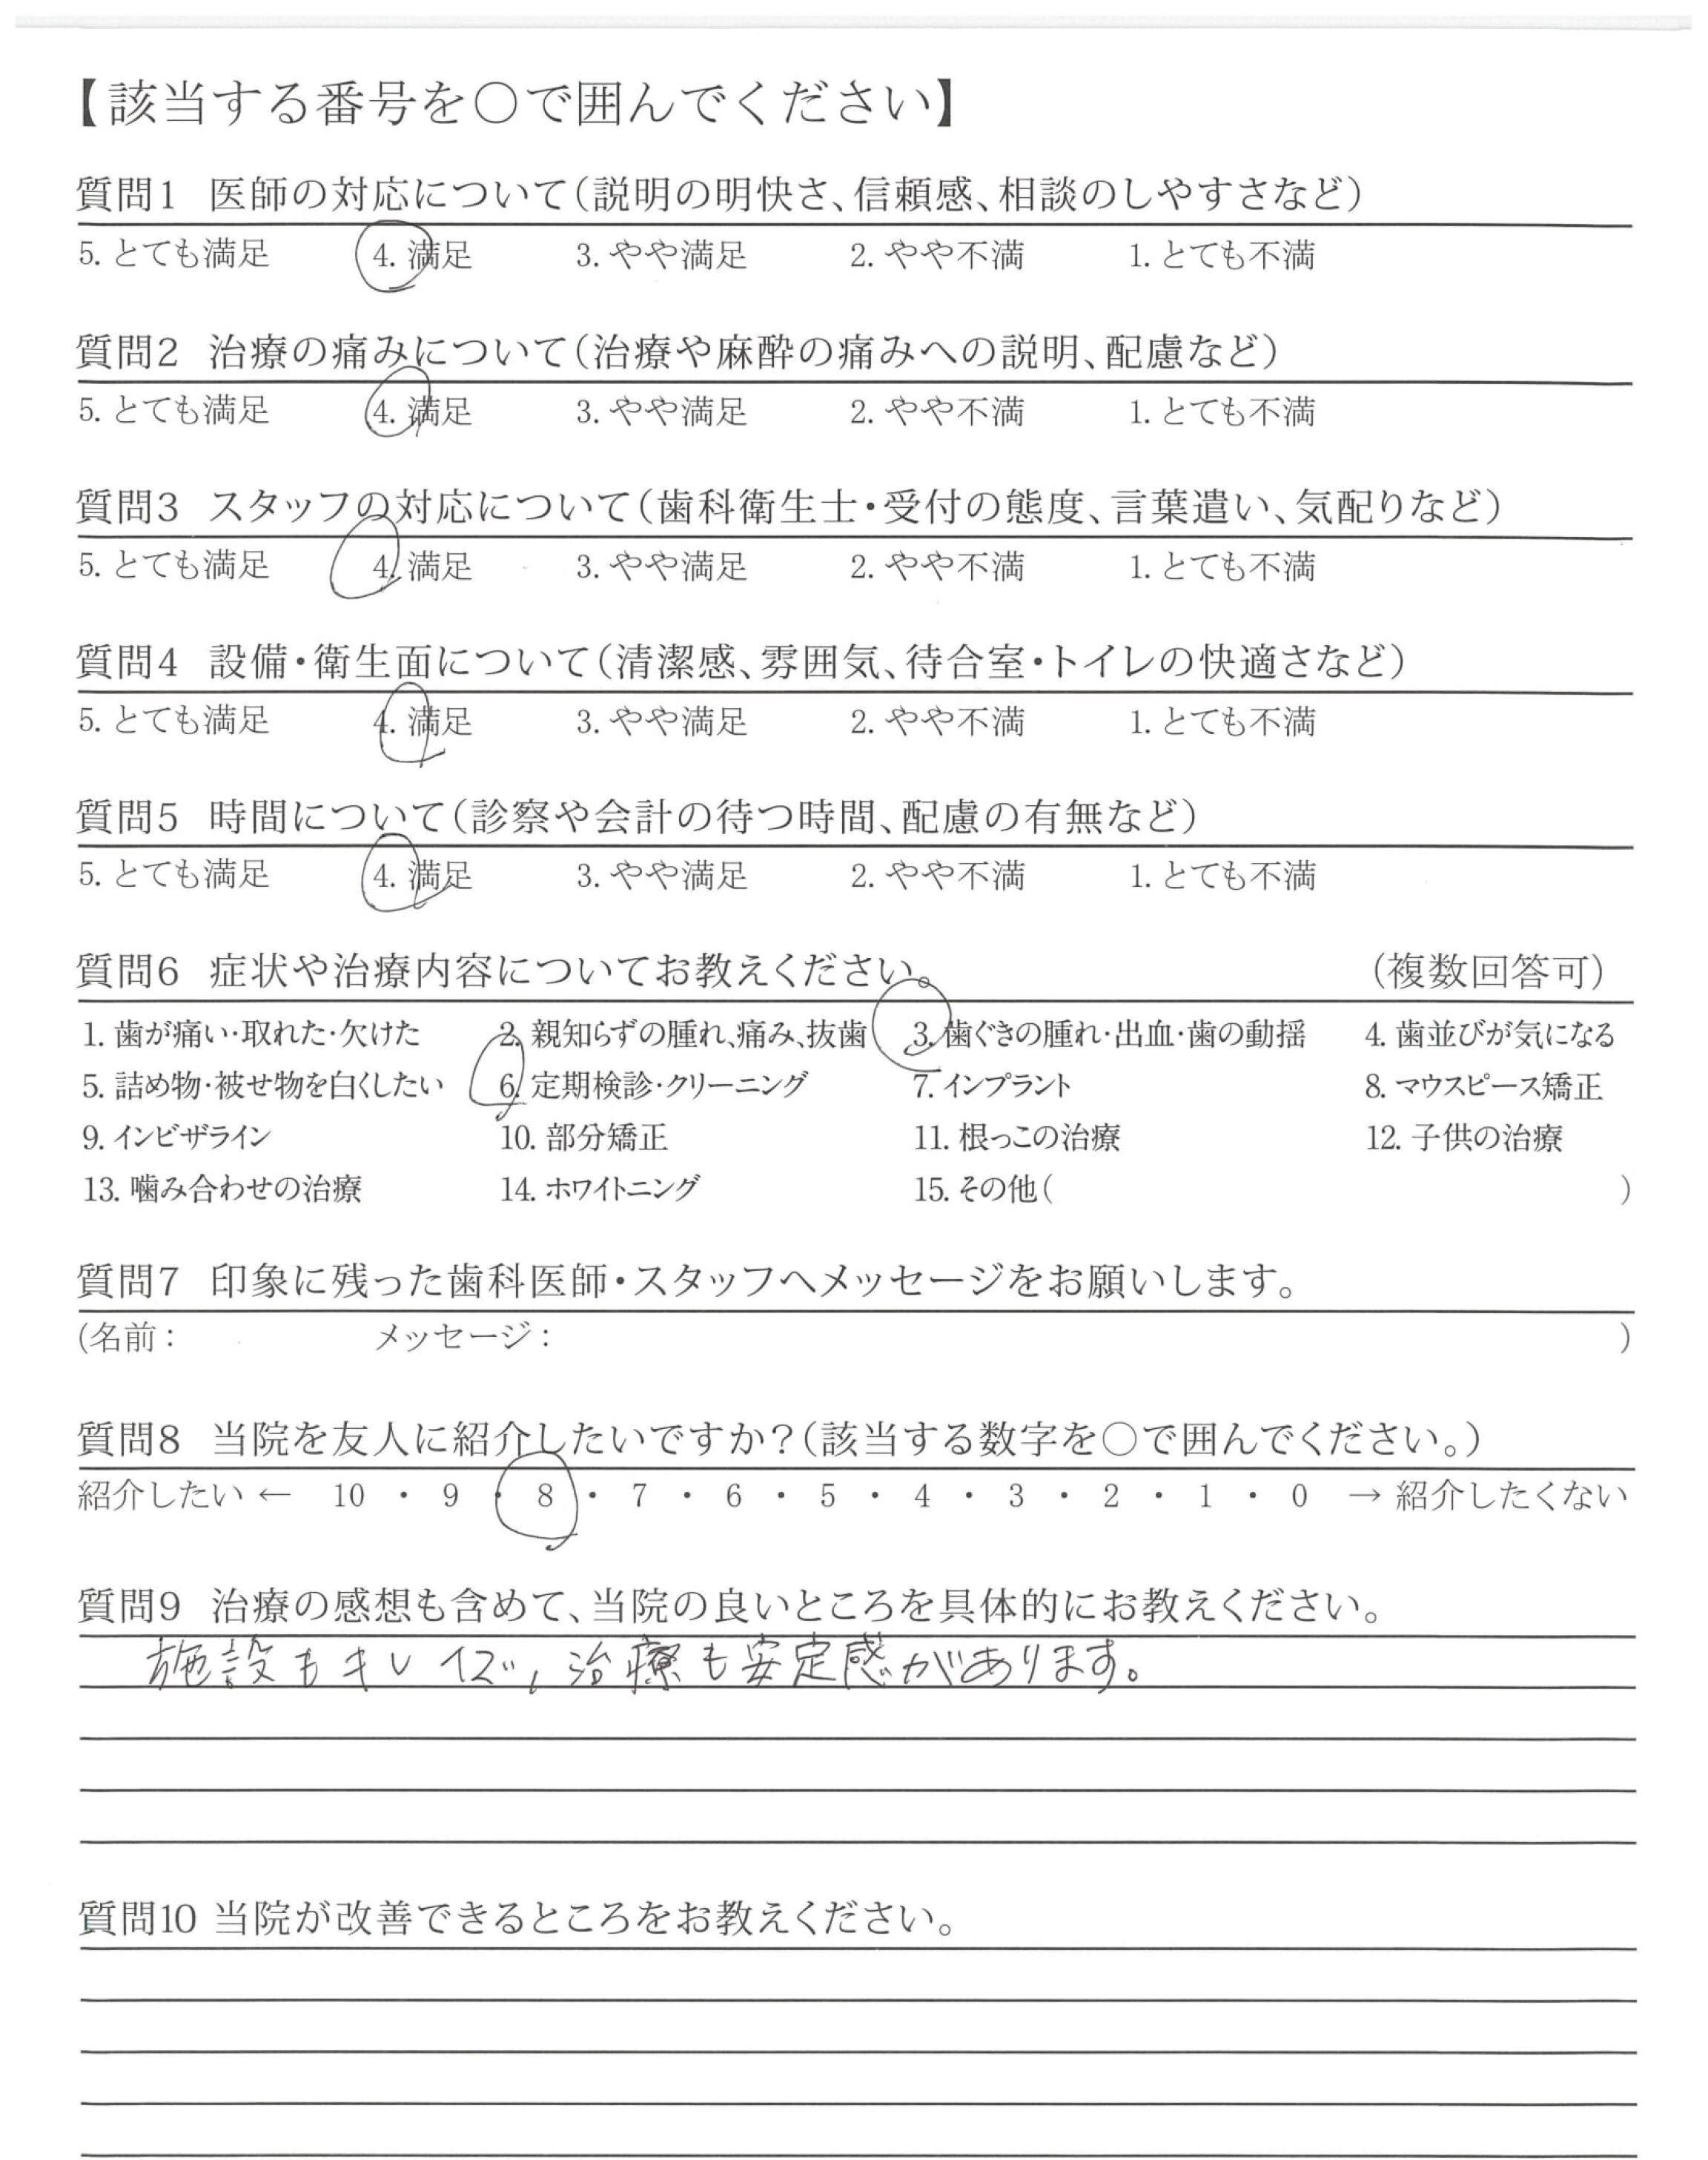 【該当する番号を〇で囲んでください】
質問1 医師の対応について(説明の明快さ、信頼感、相談のしやすさなど)
5. とても満足 4. 満足 3. やや満足 2. やや不満 1. とても不満
質問2 治療の痛みについて(治療や麻酔の痛みへの説明、配慮など)
5. とても満足 4. 満足 3. やや満足 2. やや不満 1. とても不満
質問3 スタッフの対応について(歯科衛生士・受付の態度、言葉遣い、気配りなど)
5. とても満足 4. 満足 3. やや満足 2. やや不満 1. とても不満
質問4 設備・衛生面について(清潔感、雰囲気、待合室・トイレの快適さなど)
5. とても満足 4. 満足 3. やや満足 2. やや不満 1. とても不満
質問5 時間について(診察や会計の待つ時間、配慮の有無など)
5. とても満足 4. 満足 3. やや満足 2. やや不満 1. とても不満
質問6 症状や治療内容についてお教えください。 (複数回答可)
1. 歯が痛い・取れた・欠けた 2. 親知らずの腫れ、痛み、抜歯 3. 歯ぐきの腫れ・出血・歯の動揺 4. 歯並びが気になる
5. 詰め物・被せ物を白くしたい 6. 定期検診・クリーニング 7. インプラント 8. マウスピース矯正
9. インビザライン 10. 部分矯正 11. 根っこの治療 12. 子供の治療
13. 噛み合わせの治療 14. ホワイトニング 15. その他( )
質問7 印象に残った歯科医師・スタッフへメッセージをお願いします。
(名前: メッセージ: )
質問8 当院を友人に紹介したいですか?(該当する数字を〇で囲んでください。)
紹介したい ← 10 ・ 9 ・ 8 ・ 7 ・ 6 ・ 5 ・ 4 ・ 3 ・ 2 ・ 1 ・ 0 → 紹介したくない
質問9 治療の感想も含めて、当院の良いところを具体的にお教えください。
施設もキレイで、治療も安定感があります。
質問10 当院が改善できるところをお教えください。